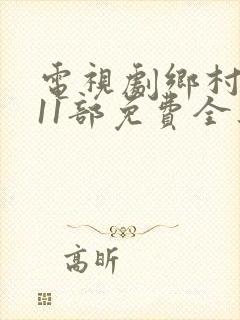 電視劇鄉村
11部免費全
高昕